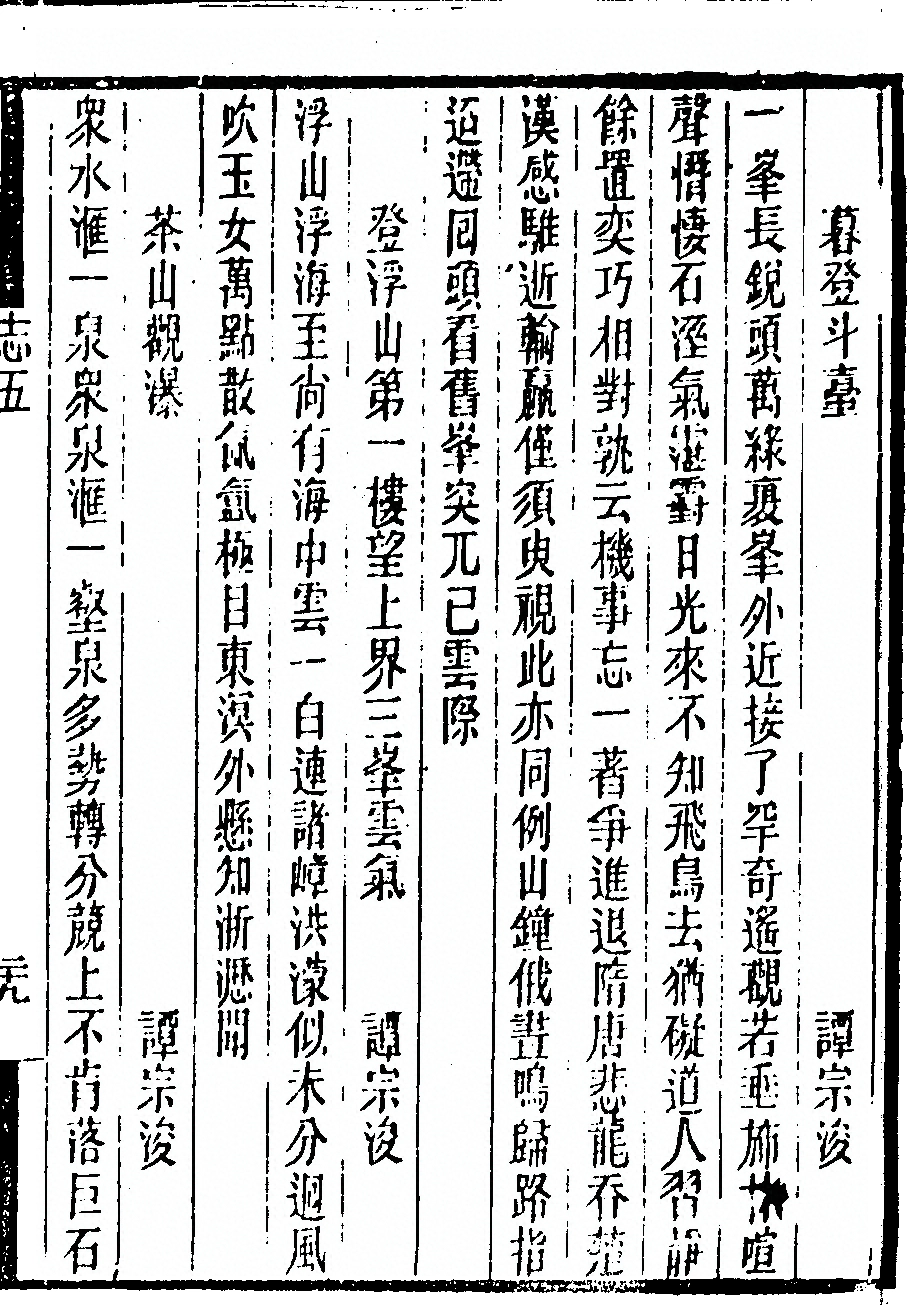 暮登斗臺　譚宗浚
一峯長銳頭萬綠裹峯外近接了罕奇遙觀若垂斾喧
聲憯悽石溼氣湛霨日光來不知飛鳥去猶礙道人習靜
餘置奕巧相對孰云機事忘一著爭進退隋唐悲龍吞楚
漢感騅逝輸贏僅須臾視此亦同例山鐘俄晝鳴歸路指
迢遞囘頭看舊峯突兀已雲際
登浮山第一樓望上界三峯雲氣　譚宗浚
浮山浮海至尚有海中雲一白連諸嶂洪濛似未分迴風
吹玉女萬點散氤氳極目東溟外懸知浙瀝聞
茶山觀瀑　譚宗浚
衆水滙一泉衆泉滙一壑泉多勢轉分競上不肯落巨石
志五
二十九